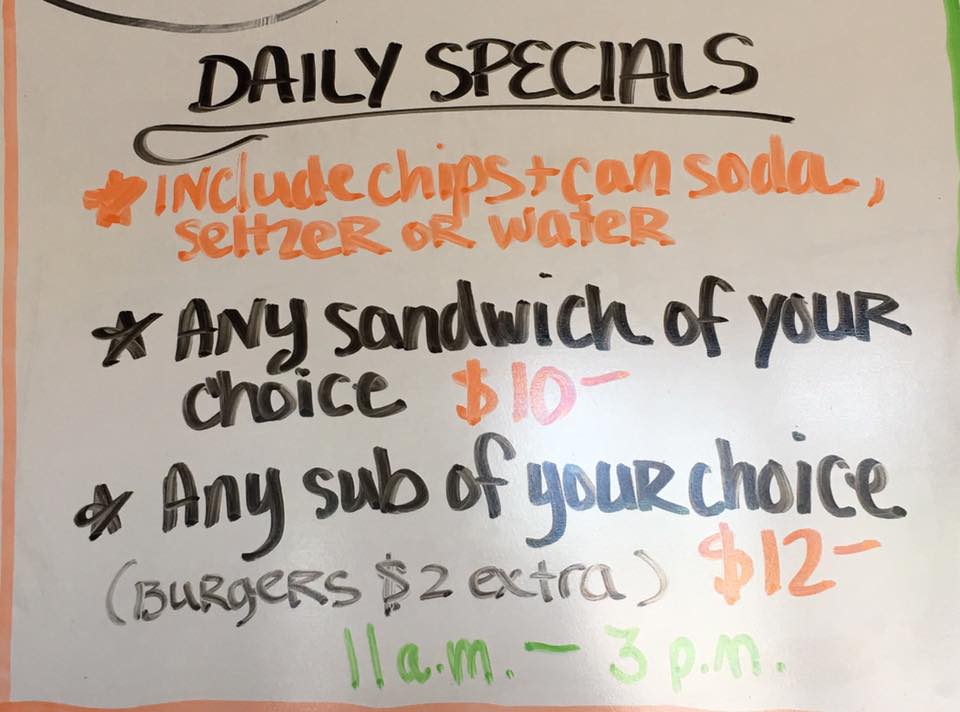 DAILY SPECIALS
* INclude chips + can soda,
seltzER OR water
* ANy sandwich of youR
choice $10-
* Any sub of youR choice
(BuRgeRs $2 extra) $12-
11 a.m. - 3 p.m.